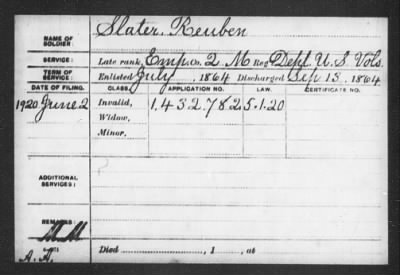 Slater, Reuben
NAME OF SOLDIER:
SERVICE: Late rank, Emp. Q. M. Reg Dept U. S. Vols.
TERM OF SERVICE: Enlisted July, 1864 Discharged Sep 13, 1864
DATE OF FILING. CLASS. APPLICATION NO. LAW. CERTIFICATE NO.
1920 June 2 Invalid, 1,432,782 5.1.20
Widow,
Minor.
ADDITIONAL SERVICES:
REMARKS:
Died , 1 , at